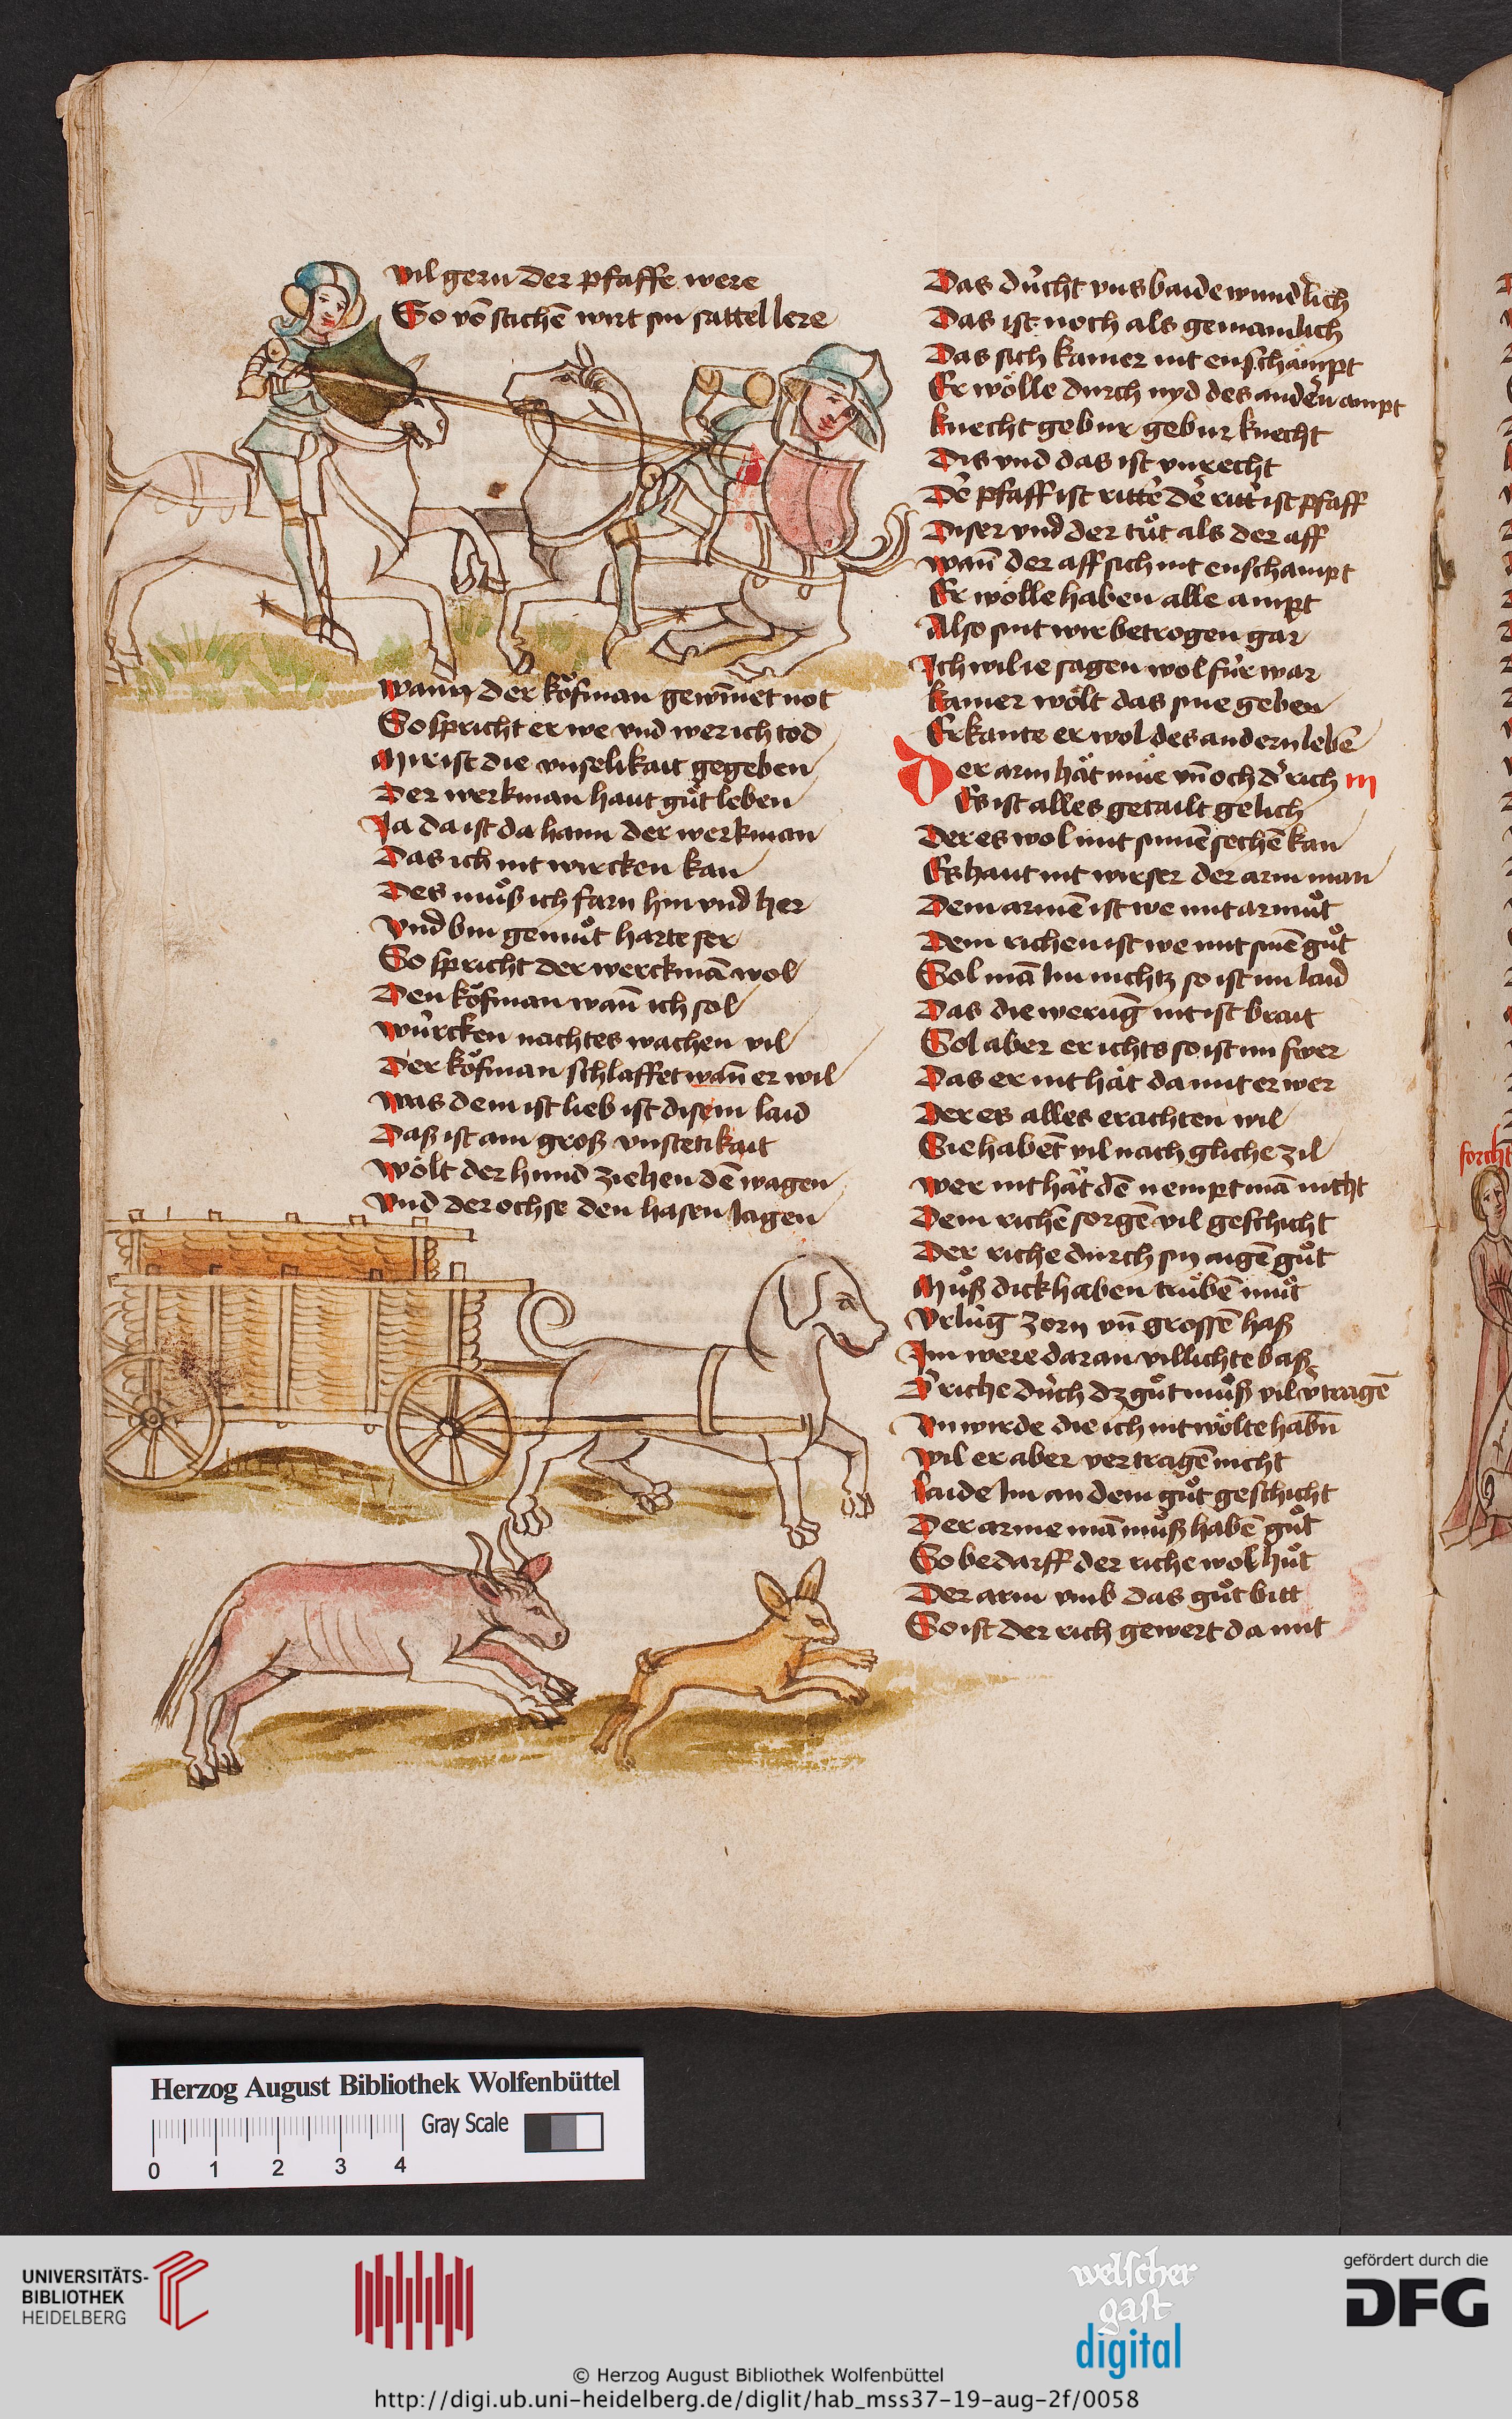 vil gern der pfaffe were
So vō stichē wirt sin sattel lere
wann der kŏfman gewīnet not
So spricht er we vnd wer ich tod
Mir ist die vnselikait gegeben
Der werkman haut gůt leben
Ja da ist da haim der werkman
Das ich nit wircken kan
Des můß ich farn hin vnd her
Vnd bin gemůt harte ser
So spricht der werckmā wol
Den kŏfman wañ ich sol
würcken nachtes wachen vil
Der kŏfman schlaffet wañ er wil
Was dem ist lieb ist disem laid
Daß ist ain groß vnstetikait
Wölt der hund ziehen dē wagen
Vnd der ochse den hasen Jagen
Das dücht vns baide wundlich
Das ist noch als gemainlich
Das sich kainer nit enschampt
Er wölle durch nyd des andern ampt
knecht gebur gebur knecht
Dis vnd das ist vnrecht
Der pfaff ist ritter der ritter ist pfaff
Diser vnd der tůt als der aff
wañ der aff sich nit enschampt
Er wölle haben alle ampt
Also sint wir betrogen gar
Ich wil ie sagen wol für war
kainer wölt das sine geben
Erkante er wol des andern lebē
Der arm hät müe vñ och d' rich m
Es ist alles getailt gelich
Der es wol mit sinnē sechē kan
Es haut nit wirser der arm man
Dem armē ist we mit armůt
Dem richen ist we mit sinē gůt
Sol mā Im nichtz so ist im laid
Das die werūg nit ist brait
Sol aber er ichts so ist im swer
Das er nit hät da mit er wer
Der es alles erachten wil
Sie habent vil nach gliche zil
wer nit hät dē nempt mā nicht
Dem richē sorgē vil geschicht
Der riche durch sin aigē gůt
Můß dick haben trübē můt
Vrlüg zorn vñ grossē haß
Im were daran villichte baß
D' riche durch dz gůt můß vil v'tragē
Vnwirde die ich nit wölte habn̄
Wil er aber vertragē nicht
laide Im an dem gůt geschicht
Der arme mā můß habē gůt
So bedarff der riche wol hůt
Der arm vmb das gůt bitt
So ist der rich gewert da mit
Herzog August Bibliothek Wolfenbüttel
Gray Scale
0 1 2 3 4
UNIVERSITÄTS-
BIBLIOTHEK
HEIDELBERG
welscher
gast
digital
gefördert durch die
DFG
© Herzog August Bibliothek Wolfenbüttel
http://digi.ub.uni-heidelberg.de/diglit/hab_mss37-19-aug-2f/0058